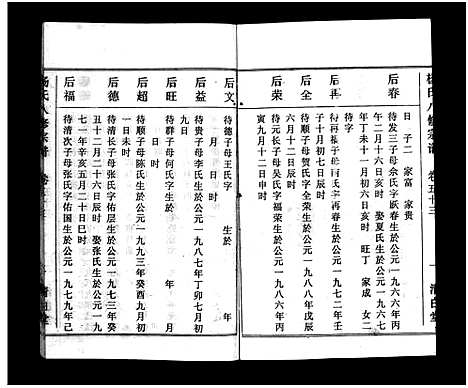 杨氏八修宗谱 卷五十三
一 清白堂
日 子二 家富 家贵
后春
待发三子母余氏字跃春生於公元一九六六年丙
午二月十六日 时 娶夏氏生於公元一九六七
年丁未十一月初六日亥时 旺丁 家成 女二
后再
待再 子母 氏字再春生於公元一九七二年壬
子十月初七日辰时
后全
待 子母贺氏字全明生於公元一九八八年戊辰
十月二十二日亥时
后荣
待 长子母吴氏字福荣生於公元一九八六年丙
寅九月十二日申时
后文
待德子母王氏字 生於 年
月 日 时
后益
待贵子母李氏生於公元一九八七年丁卯七月初
九日
后旺
待群子母何氏字生於 年 月
日 时
后超
待顺子母陈氏生於公元一九九三年癸酉九月初
一日未时
后德
待清长子母张氏字佑层生於公元一九七三年癸
丑十二月二十六日辰时 娶张氏生於公元一九
七一年辛亥五月二十日巳时
后福
待清次子母张氏字佑国生於公元一九七九年己
杨氏八修宗谱 卷五十三
清白堂